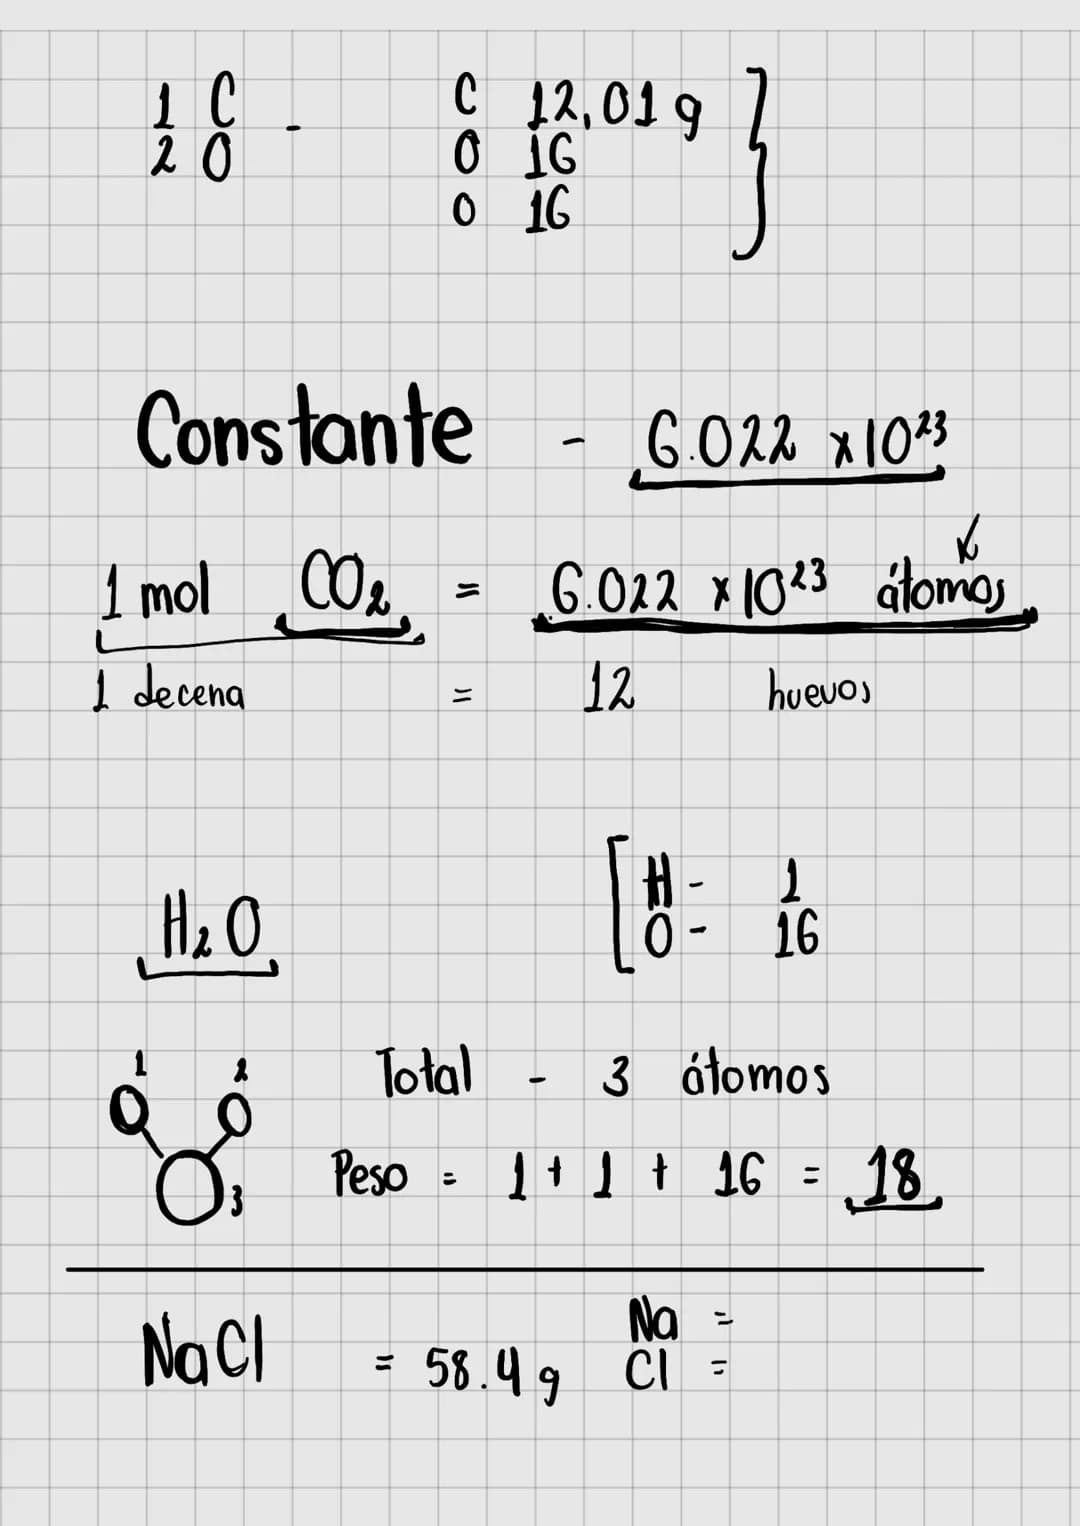 1 C - C 12,01 g
2 O O 16
O 16
Constante - 6.022 x10²³
1 mol CO₂ = 6.022 x10²³ átomos
1 decena = 12 huevos
H₂O
H - 1
O - 16
1 2
Total - 3 átomos
3
Peso = 1 + 1 + 16 = 18
NaCl = 58.4 g
Na =
Cl =